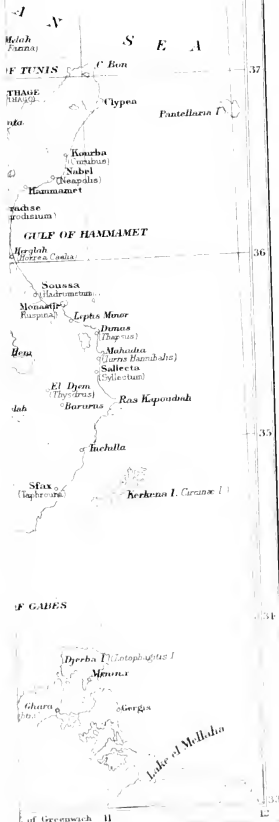 A N
S E A
Melah
C. Bon
OF TUNIS
37
THAGE
Clypea
Pantellaria I
Kourba
(Curubus)
Nabel
(Neapolis)
Hammamet
GULF OF HAMMAMET
Herglah
(Horrea Coelia)
36
Soussa
(Hadrumetum
Monastir
Ruspina)
Leptis Minor
Dimas
(Thapsus)
Mahadia
(Turris Hannibalis)
Sallecta
(Syllectum)
El Djem
(Thysdrus)
Bararus
Ras Kapoudiah
35
Inchilla
Sfax
(Taphroura)
Kerkena I. Circinae I)
OF GABES
34
Djerba I (Lotophagitis I
Meninx
Ghara
Gergis
Lake el Mellaha
33
of Greenwich 11
12